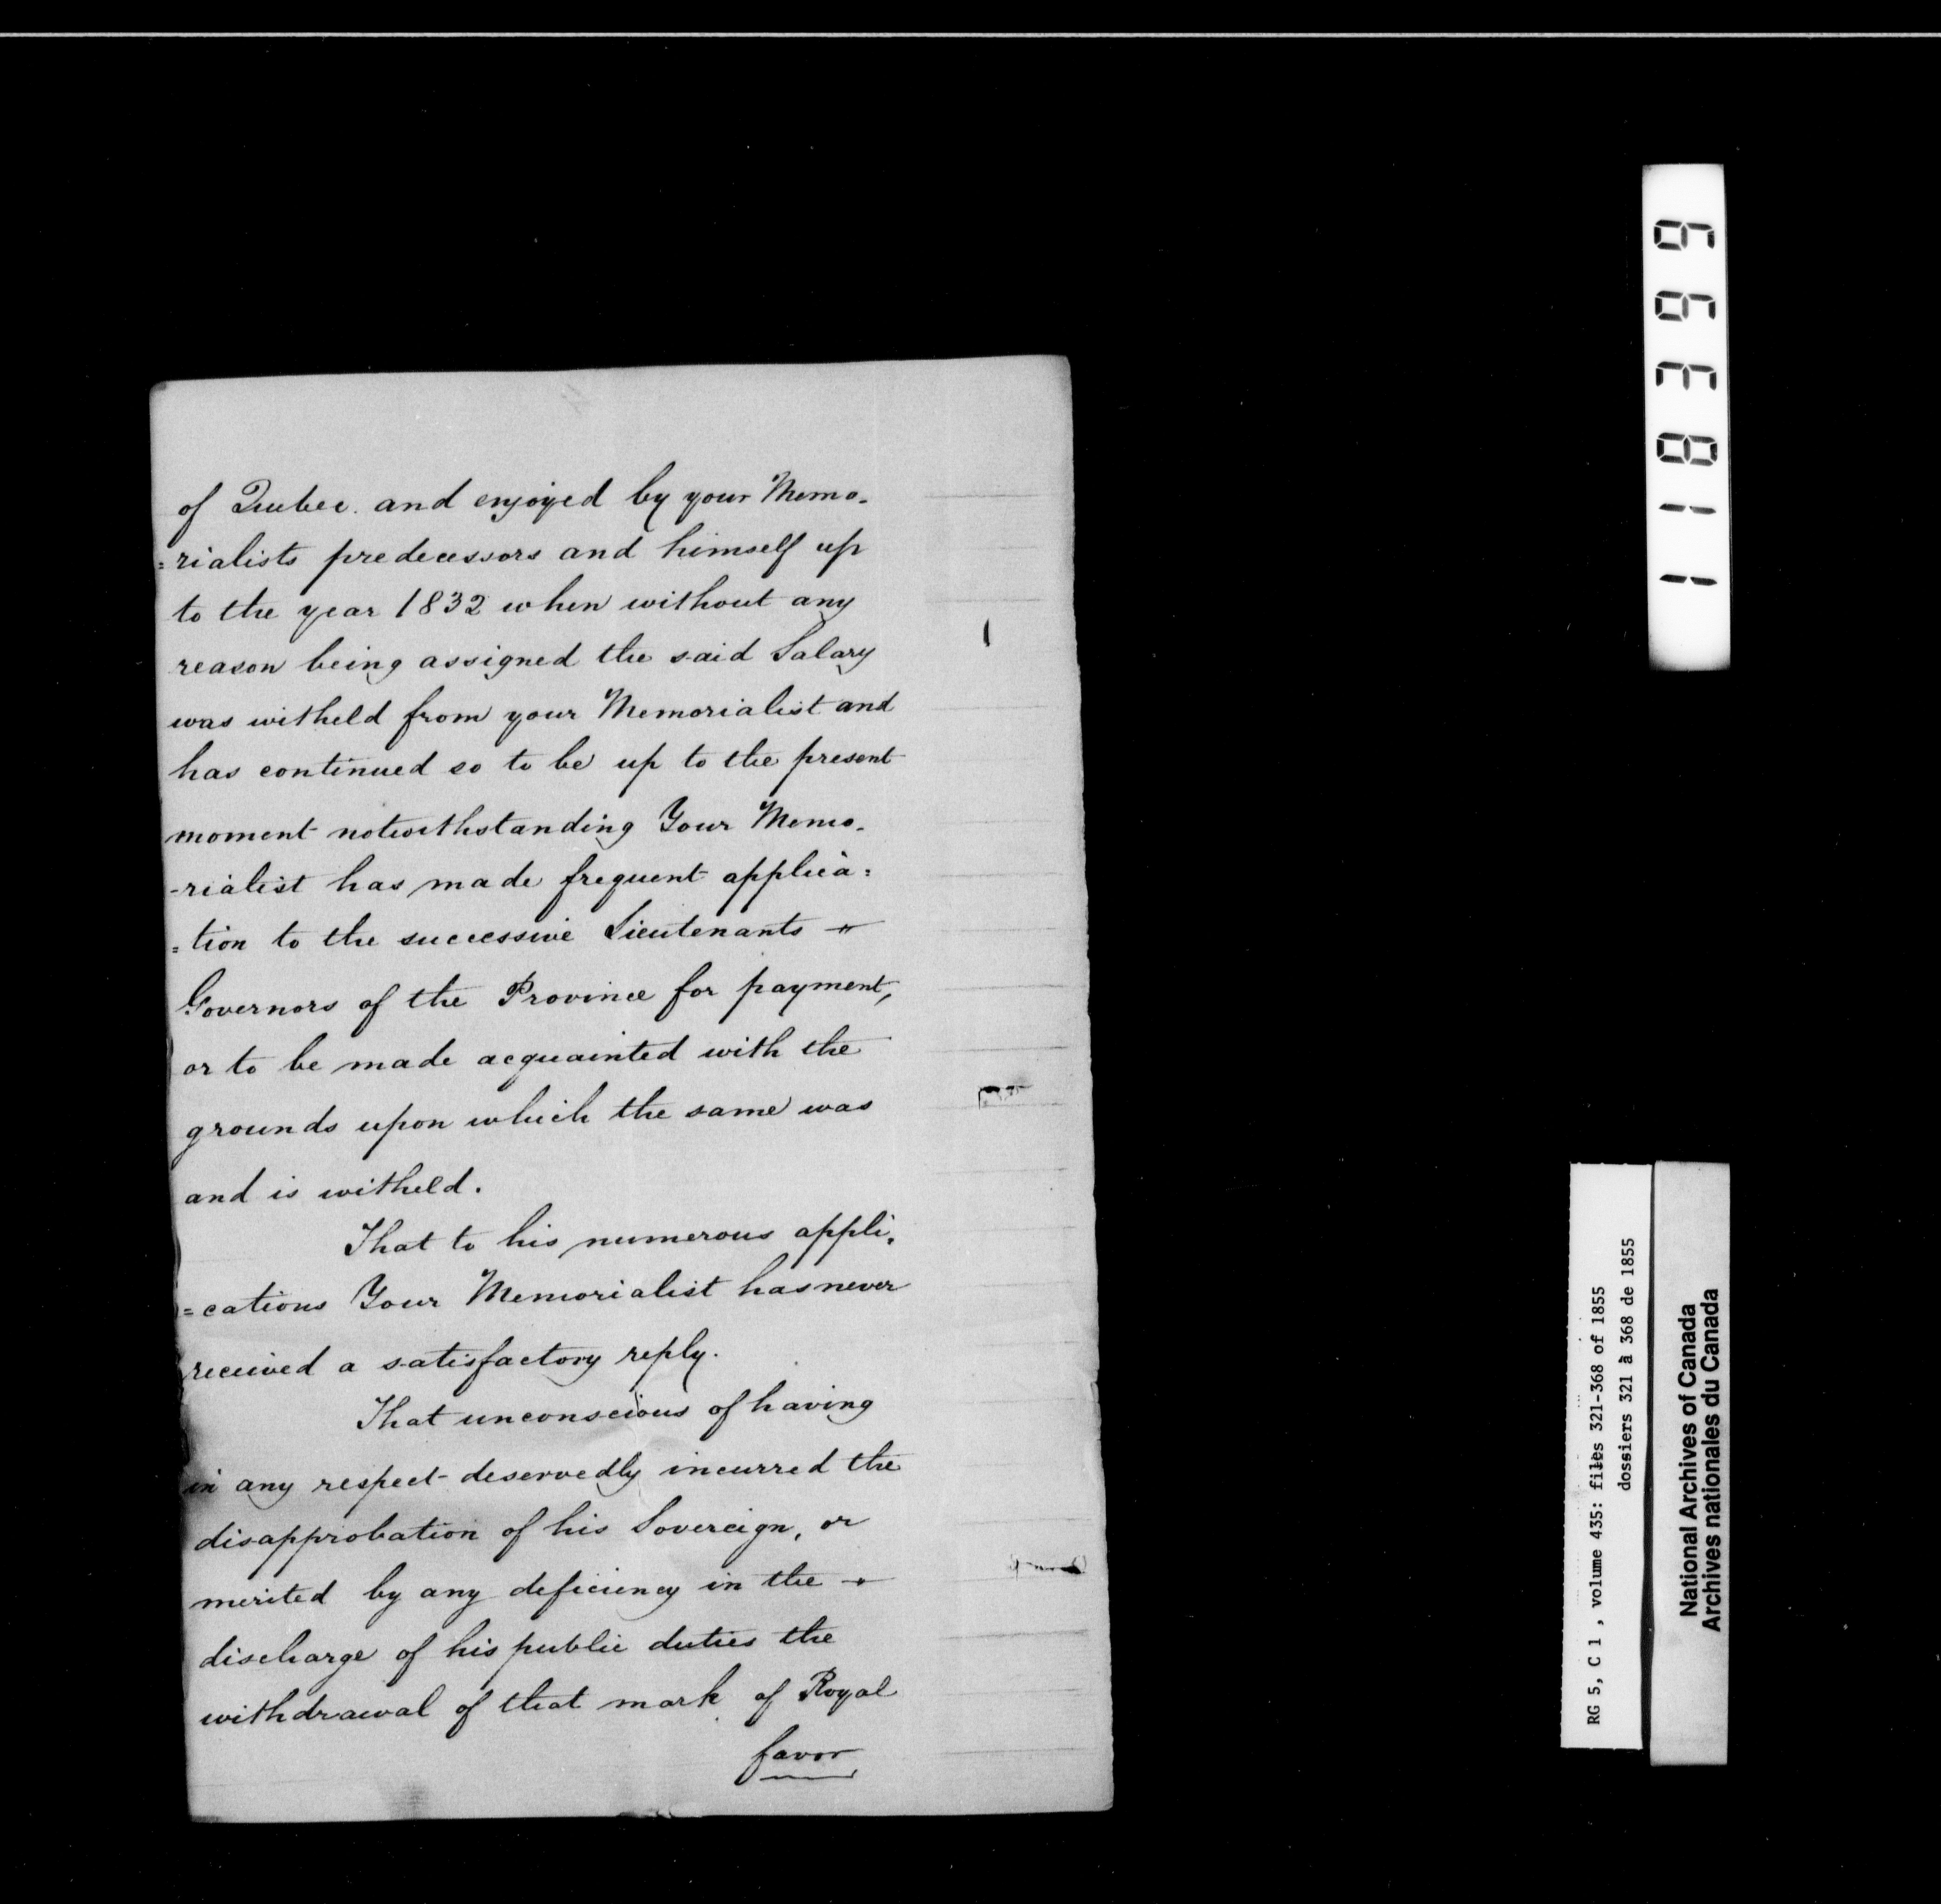 of Quebec. and enjoyed by your Memo-
=rialists predecessors and himself up
to the year 1832 when without any
reason being assigned the said Salary
was witheld from your Memorialist and
has continued so to be up to the present
moment notwithstanding Your Memo-
-rialist has made frequent applica=
=tion to the successive Lieutenants -
Governors of the Province for payment,
or to be made acquainted with the
grounds upon which the same was
and is witheld.
That to his numerous appli-
=cations Your Memorialist has never
received a satisfactory reply.
That unconscious of having
in any respect deservedly incurred the
disapprobation of his Sovereign, or
merited by any deficiency in the -
discharge of his public duties the
withdrawal of that mark of Royal
favor
118399
RG 5, C 1 , volume 435: files 321-368 of 1855
dossiers 321 à 368 de 1855
National Archives of Canada
Archives nationales du Canada